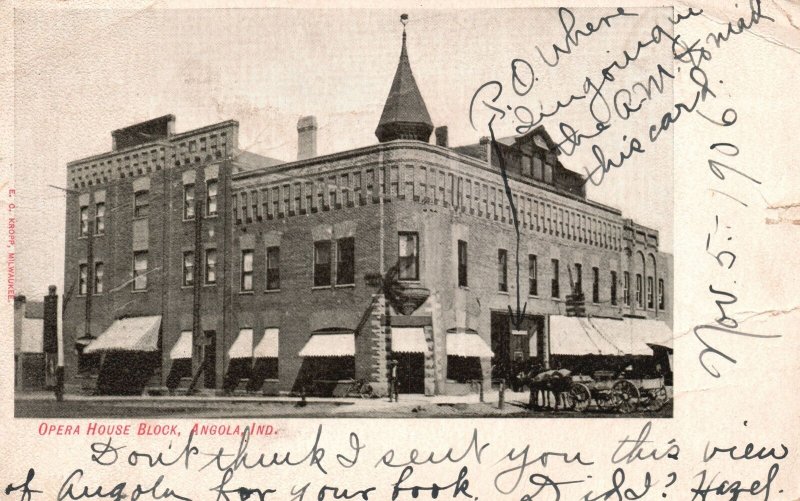 P.O. Where
I'm going
the A.M. to mail
this card.
Nov. 5. - 1906
E. C. KROPP, MILWAUKEE.
OPERA HOUSE BLOCK, ANGOLA, IND.
Don't think I sent you this view
of Angola for your book. Did I? Hazel.